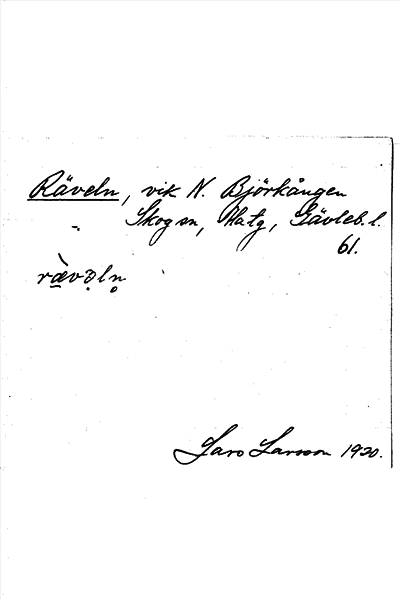 Räveln, vik N. Björkången
„ Skog sn, Hatg, Gävleb. l.
61.
rævəln
Lars Larsson 1920.